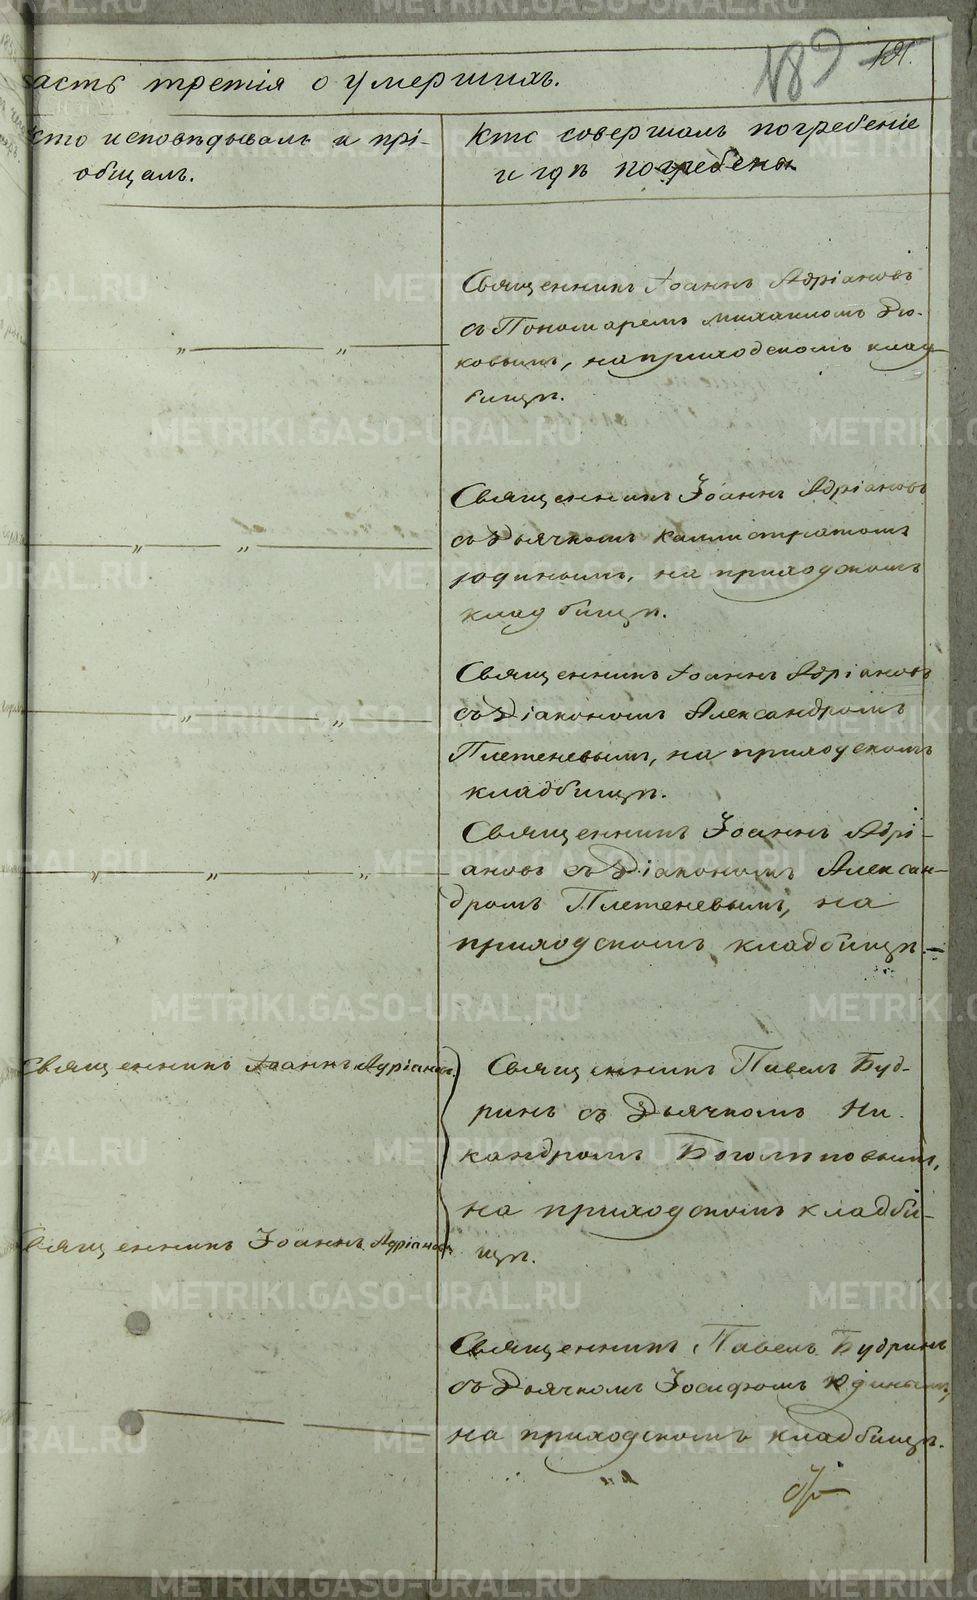 189 181.
асть третія о умершихъ.
Кто исповѣдывалъ и прі-
общалъ.
Кто совершалъ погребеніе
и гдѣ погребены
Священникъ Іоаннъ Адріановъ
съ Пономаремъ Михаиломъ Дю-
ковымъ, на приходскомъ клад-
бищѣ.
Священникъ Іоаннъ Адріановъ
съ Дьячкомъ Каллистратомъ
Юдинымъ, на приходскомъ
кладбищѣ.
Священникъ Іоаннъ Адріановъ
съ Діакономъ Александромъ
Плетеневымъ, на приходскомъ
кладбищѣ.
Священникъ Іоаннъ Адрі-
ановъ съ Діакономъ Алексан-
дромъ Плетеневымъ, на
приходскомъ кладбищѣ.-
Священникъ Іоаннъ Адріановъ
Священникъ Павелъ Буд-
ринъ съ Дьячкомъ Ни-
кандромъ Боголѣповымъ,
на приходскомъ кладби-
щѣ.
Священникъ Іоаннъ Адріановъ
Священникъ Павелъ Будринъ
съ Дьячкомъ Іосифомъ Юдинымъ,
на приходскомъ кладбищѣ.
METRIKI.GASO-URAL.RU